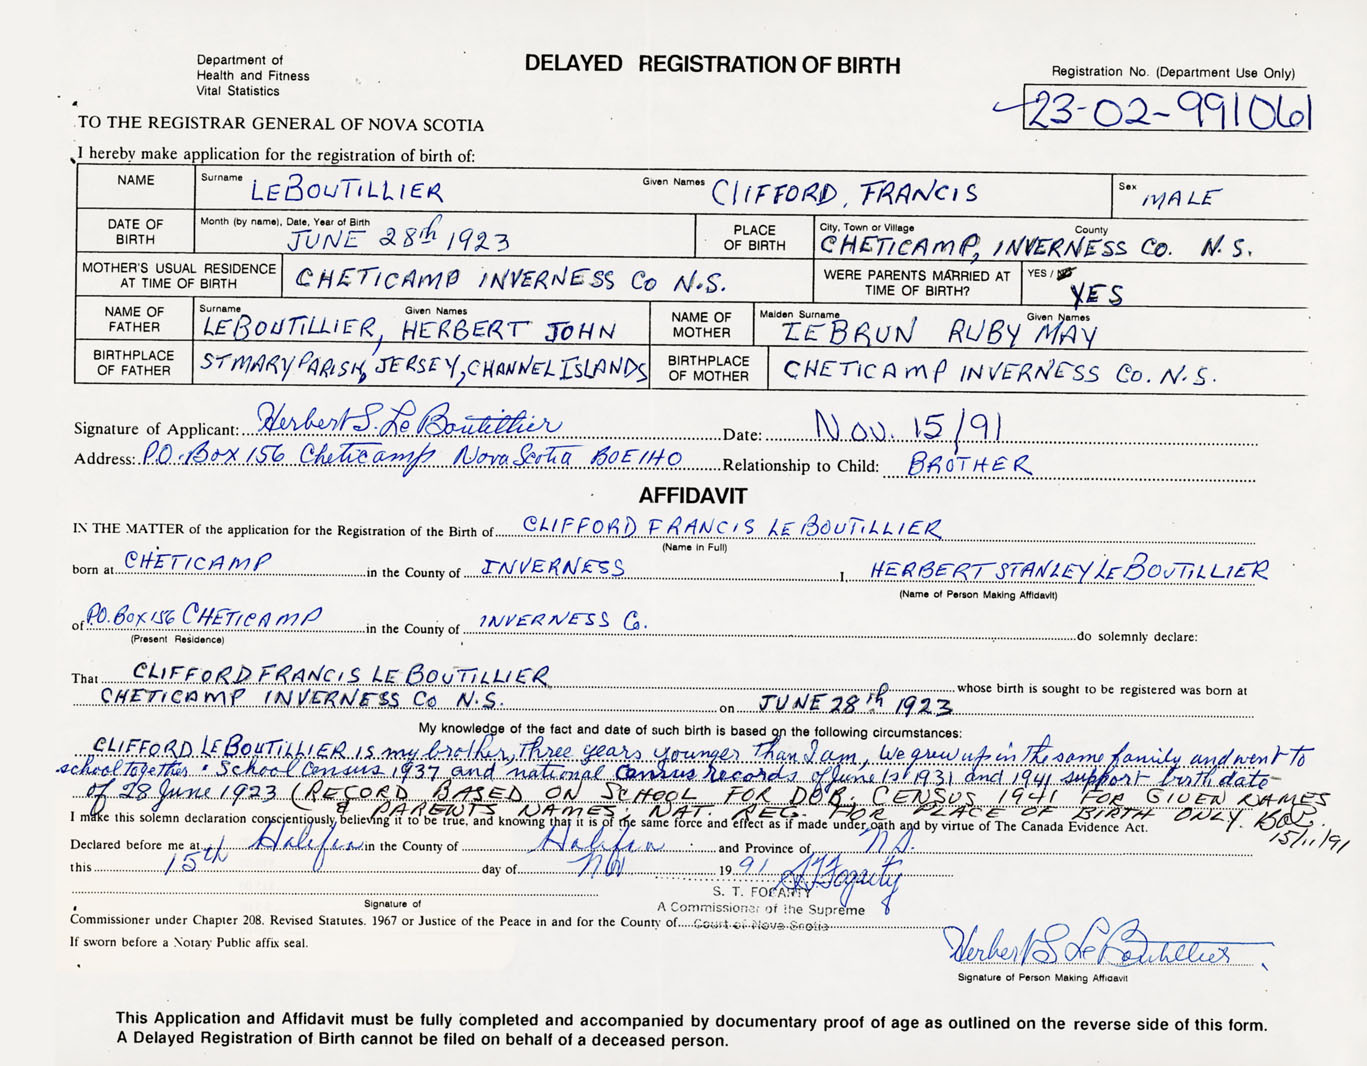 Department of
Health and Fitness
Vital Statistics
DELAYED REGISTRATION OF BIRTH
Registration No. (Department Use Only)
23-02-991061
TO THE REGISTRAR GENERAL OF NOVA SCOTIA
I hereby make application for the registration of birth of:
NAME Surname LEBOUTILLIER Given Names CLIFFORD, FRANCIS Sex MALE
DATE OF BIRTH Month (by name), Date, Year of Birth JUNE 28th 1923 PLACE OF BIRTH City, Town or Village County CHETICAMP, INVERNESS CO. N.S.
MOTHER'S USUAL RESIDENCE AT TIME OF BIRTH CHETICAMP INVERNESS CO N.S. WERE PARENTS MARRIED AT TIME OF BIRTH? YES / YES
NAME OF FATHER Surname Given Names LEBOUTILLIER, HERBERT JOHN NAME OF MOTHER Maiden Surname Given Names LEBRUN RUBY MAY
BIRTHPLACE OF FATHER ST MARY PARISH, JERSEY, CHANNEL ISLANDS BIRTHPLACE OF MOTHER CHETICAMP INVERNESS CO. N.S.
Signature of Applicant: Herbert S. Le Boutillier Date: Nov. 15/91
Address: P.O. Box 156 Cheticamp Nova Scotia BOE1HO Relationship to Child: BROTHER
AFFIDAVIT
IN THE MATTER of the application for the Registration of the Birth of CLIFFORD FRANCIS LE BOUTILLIER
(Name in Full)
born at CHETICAMP in the County of INVERNESS I, HERBERT STANLEY LE BOUTILLIER
(Name of Person Making Affidavit)
of P.O. BOX 156 CHETICAMP in the County of INVERNESS Co. do solemnly declare:
(Present Residence)
That CLIFFORD FRANCIS LE BOUTILLIER whose birth is sought to be registered was born at
CHETICAMP INVERNESS CO N.S. on JUNE 28th 1923
My knowledge of the fact and date of such birth is based on the following circumstances:
CLIFFORD LEBOUTILLIER is my brother, three years younger than I am, we grew up in the same family and went to
school together. School Census 1937 and national Census records of June 1st 1931 and 1941 support birth date
of 28 June 1923 (RECORD BASED ON SCHOOL FOR DOB; CENSUS 1941 FOR GIVEN NAMES
& PARENTS NAMES; NAT. REG. FOR PLACE OF BIRTH ONLY.
15/11/91
I make this solemn declaration conscientiously believing it to be true, and knowing that it is of the same force and effect as if made under oath and by virtue of The Canada Evidence Act.
Declared before me at Halifax in the County of Halifax and Province of N.S.
this 15th day of Nov 1991 S T Fogarty
S. T. FOGARTY
Signature of
A Commissioner of the Supreme
Commissioner under Chapter 208. Revised Statutes. 1967 or Justice of the Peace in and for the County of Court of Nova Scotia
If sworn before a Notary Public affix seal.
Herbert S Le Boutillier
Signature of Person Making Affidavit
This Application and Affidavit must be fully completed and accompanied by documentary proof of age as outlined on the reverse side of this form.
A Delayed Registration of Birth cannot be filed on behalf of a deceased person.